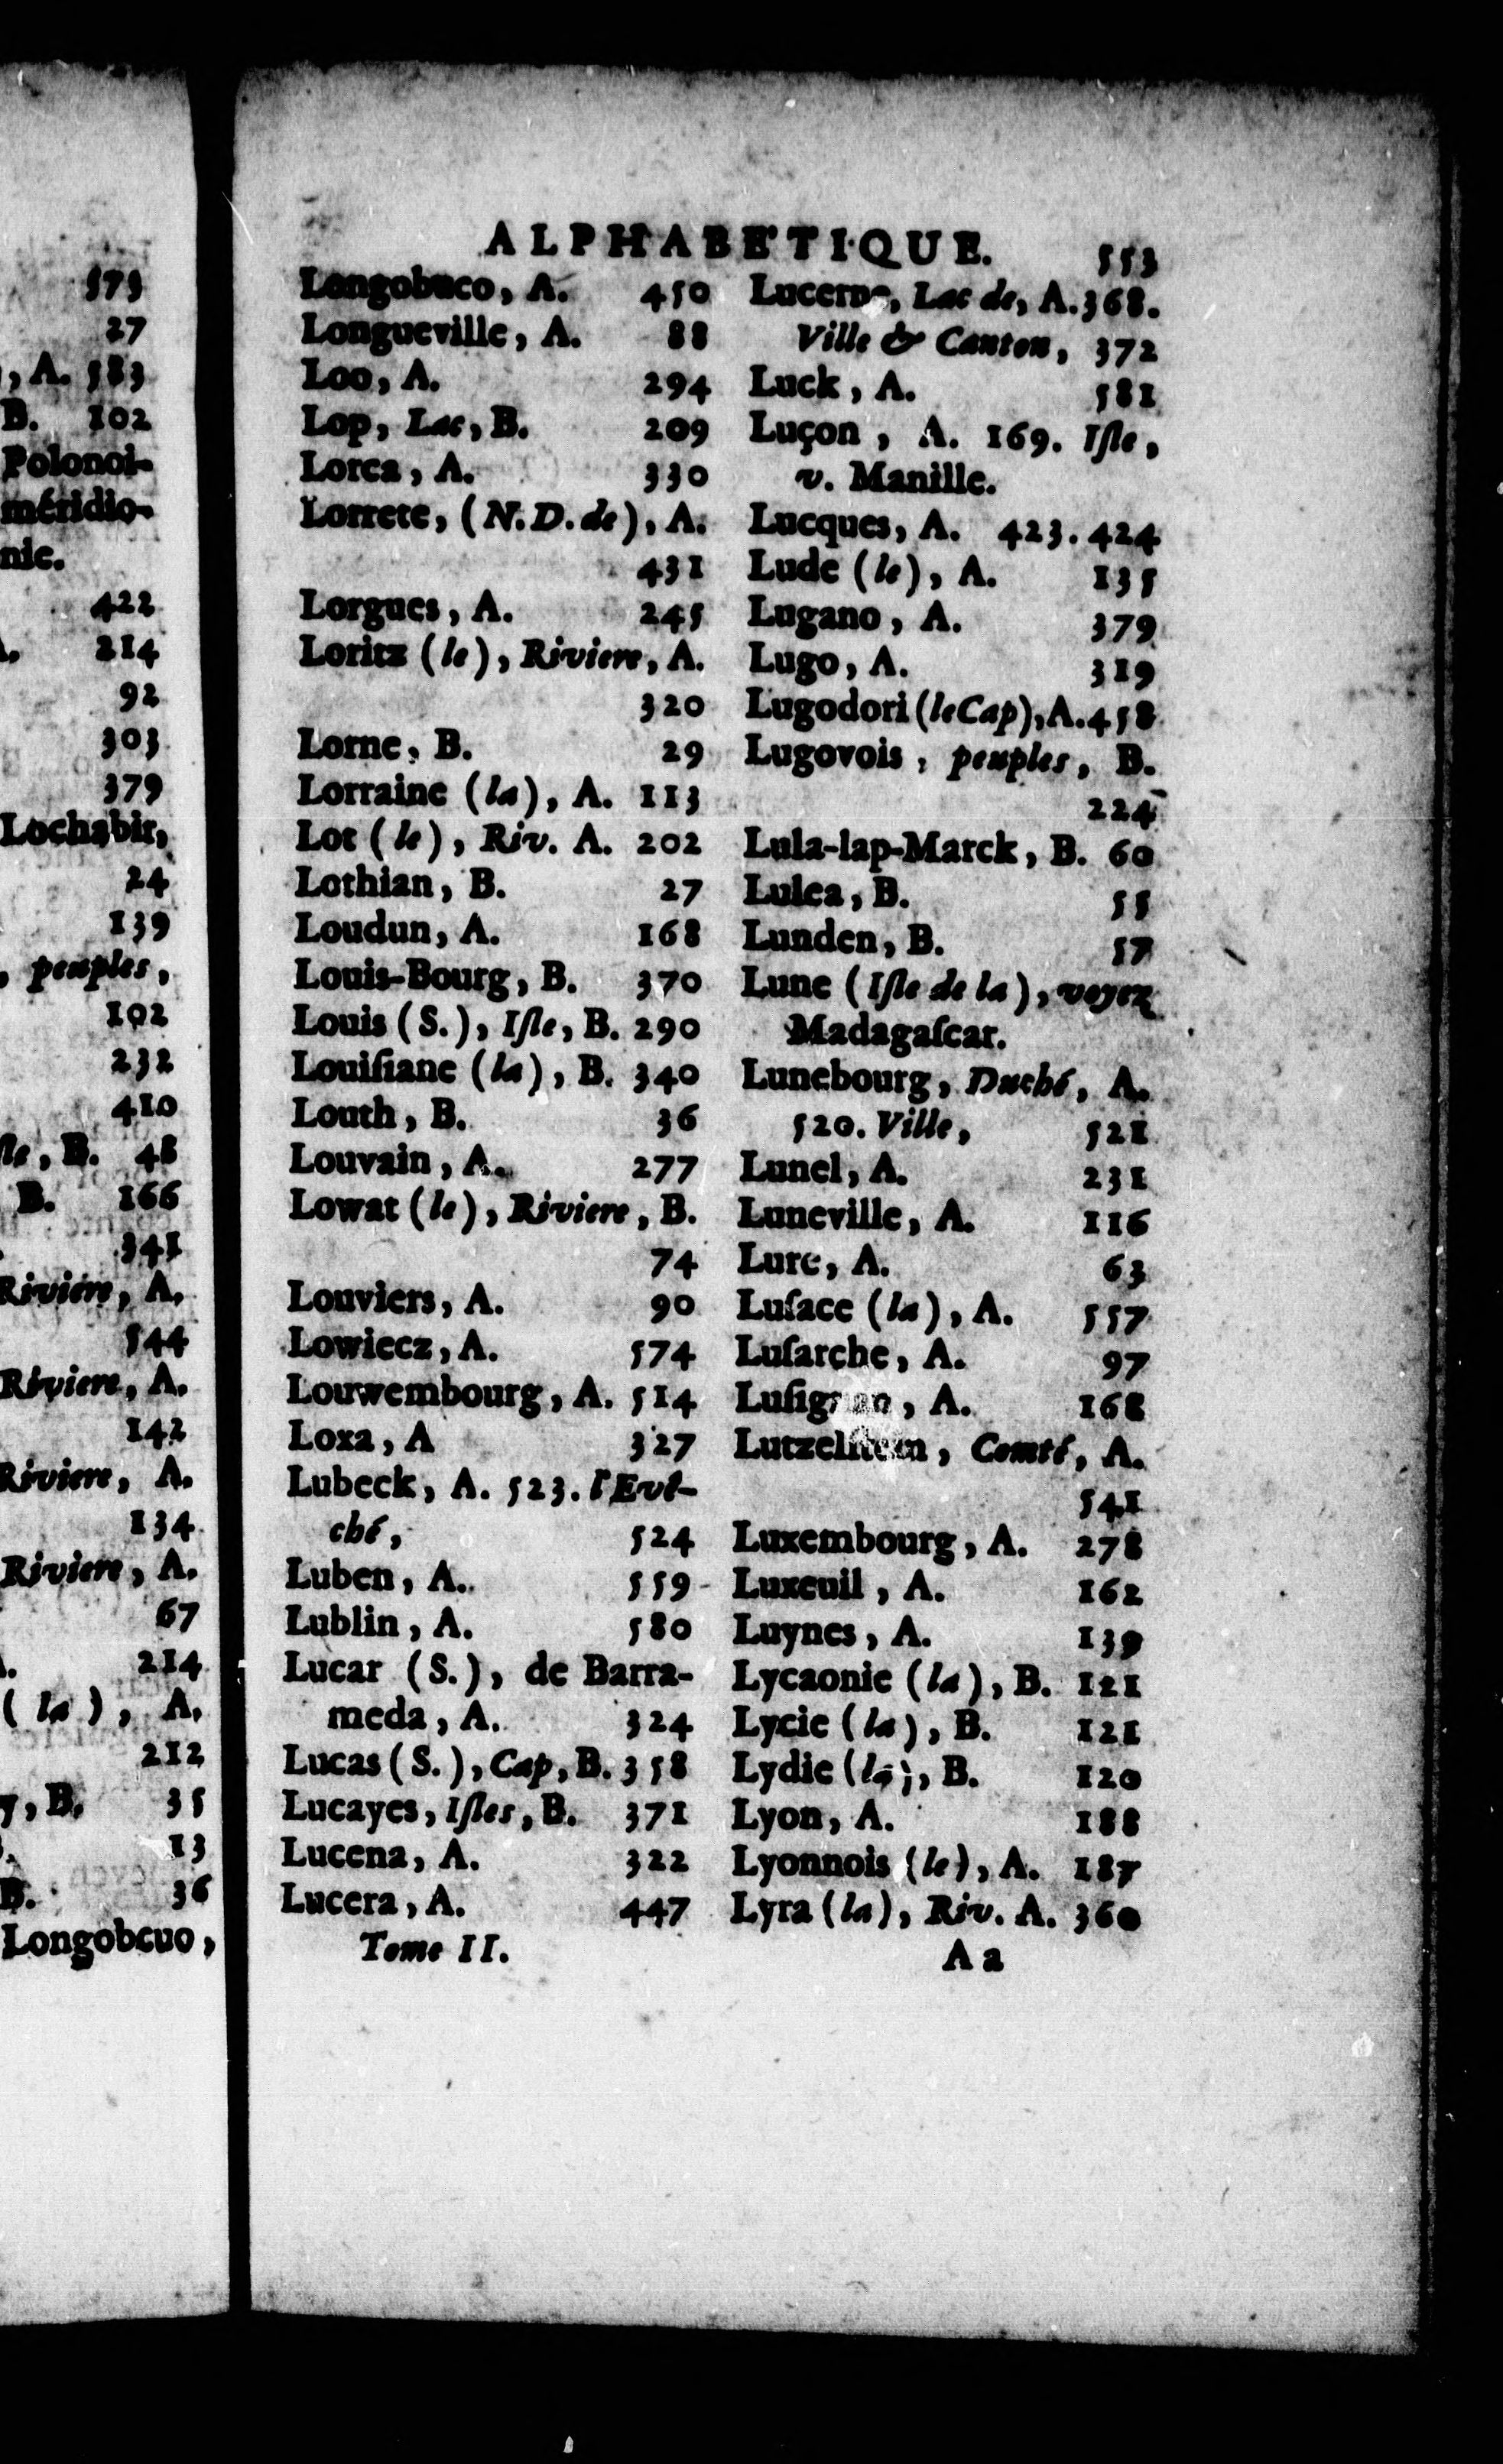 573
27
, A. 583
B. 102
Polonoi-
méridio-
nie.
422
214
92
303
379
Lochabir,
24
139
, peuples,
102
232
410
B. 48
B. 166
341
Riviére, A.
544
Riviere, A.
142
Riviere, A.
134
Riviere, A.
67
214
( la ), A.
212
y, B. 35
13
B. 36
Longobcuo,
ALPHABETIQUE. 553
Longobuco, A. 450
Longueville, A. 88
Loo, A. 294
Lop, Lac, B. 209
Lorca, A. 330
Lorrete, (N. D. de), A.
431
Lorgues, A. 245
Loritz (le), Riviere, A.
320
Lorne, B. 29
Lorraine (la), A. 113
Lot (le), Riv. A. 202
Lothian, B. 27
Loudun, A. 168
Louis-Bourg, B. 370
Louis (S.), Iſle, B. 290
Louiſiane (la), B. 340
Louth, B. 36
Louvain, A. 277
Lowat (le), Riviere, B.
74
Louviers, A. 90
Lowiecz, A. 574
Louwembourg, A. 514
Loxa, A 327
Lubeck, A. 523. l'Evê-
ché, 524
Luben, A. 559
Lublin, A. 580
Lucar (S.), de Barra-
meda, A. 324
Lucas (S.), Cap, B. 358
Lucayes, Iſles, B. 371
Lucena, A. 322
Lucera, A. 447
Tome II.
Lucerne, Lac de, A. 368.
Ville & Canton, 372
Luck, A. 581
Luçon, A. 169. Iſle,
v. Manille.
Lucques, A. 423. 424
Lude (le), A. 135
Lugano, A. 379
Lugo, A. 319
Lugodori (le Cap), A. 458
Lugovois, peuples, B.
224
Lula-lap-Marck, B. 60
Lulea, B. 55
Lunden, B. 57
Lune (Iſle de la), voyez
Madagaſcar.
Lunebourg, Duché, A.
520. Ville, 521
Lunel, A. 231
Luneville, A. 116
Lure, A. 63
Luſace (la), A. 557
Luſarche, A. 97
Luſignan, A. 168
Lutzelſtein, Comté, A.
541
Luxembourg, A. 278
Luxeuil, A. 162
Luynes, A. 139
Lycaonie (la), B. 121
Lycie (la), B. 121
Lydie (la), B. 120
Lyon, A. 188
Lyonnois (le), A. 187
Lyra (la), Riv. A. 360
A a